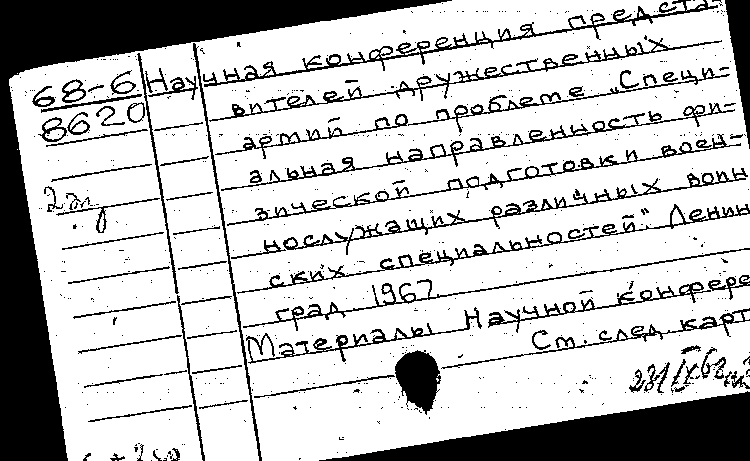 68-6
8620
2 эк
Научная конференция предста-
вителей дружественных
армий по проблеме „Специ=
альная направленность фи=
зической подготовки воен=
нослужащих различных воин
ских специальностей". Ленин
град 1967.
Материалы Научной конфере
См. след. карт